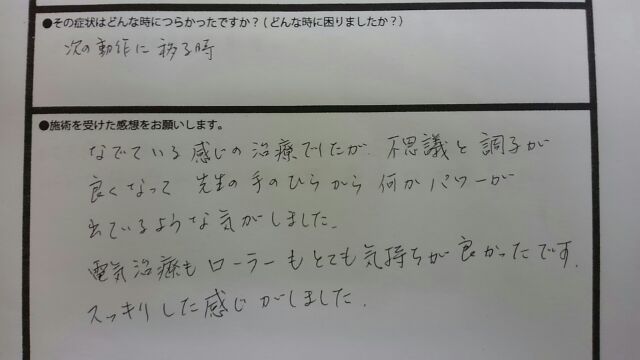 ●その症状はどんな時につらかったですか？(どんな時に困りましたか？)
次の動作に移る時
●施術を受けた感想をお願いします。
なでている感じの治療でしたが、不思議と調子が
良くなって先生の手のひらから何かパワーが
出ているような気がしました。
電気治療もローラーもとても気持ちが良かったです。
スッキリした感じがしました。